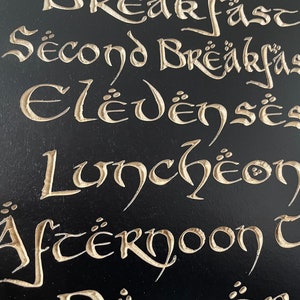 Breakfast
Second Breakfas
Elevenses
Luncheon
Afternoon T
Dinner